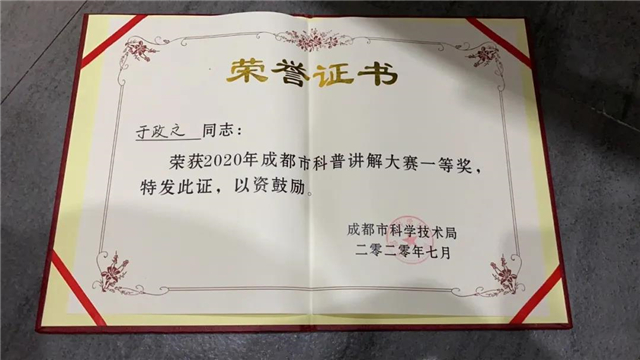 荣誉证书
于政之 同志：
荣获2020年成都市科普讲解大赛一等奖，
特发此证，以资鼓励。
成都市科学技术局
二零二零年七月